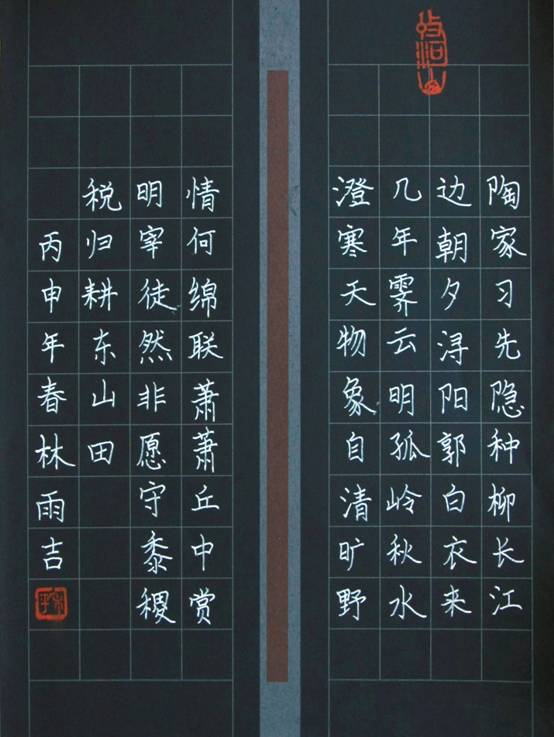 陶家习先隐种柳长江
边朝夕浔阳郭白衣来
几年霁云明孤岭秋水
澄寒天物象自清旷野
情何绵联萧萧丘中赏
明宰徒然非愿守黍稷
税归耕东山田
丙申年春林雨吉